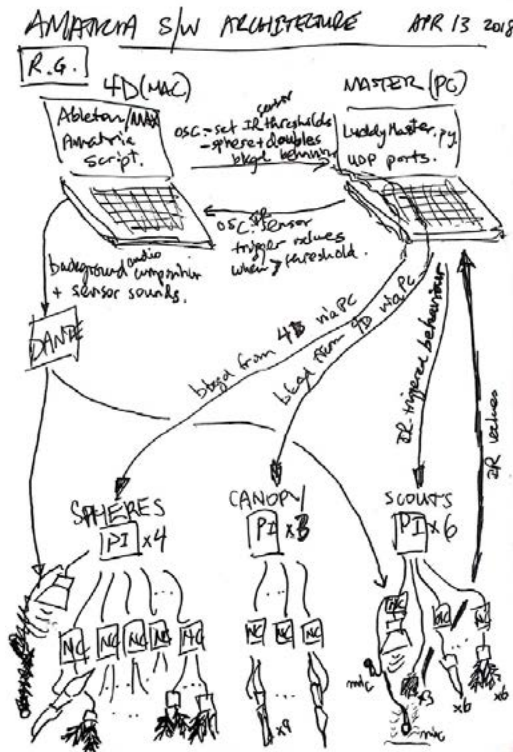 AMATRIA S/W ARCHITECTURE APR 13 2018
R.G.
4D (MAC)
MASTER (PC)
Ableton/MAX
Amatria
Script.
OSC - set IR sensor thresholds
- sphere + doubles
bkgd behaviour
LuddyMaster.py
UDP ports.
OSC: IR sensor
trigger values
when > threshold.
background audio composition
+ sensor sounds.
DANTE
bkgd from 4D via PC
bkgd from 4D via PC
IR-triggered behaviour
IR values
SPHERES
PI x4
CANOPY
PI x3
SCOUTS
PI x6
...
...
NC
NC NC NC NC NC
NC NC NC
NC NC
mic
x3
x6
x6
...
...
x9
mic